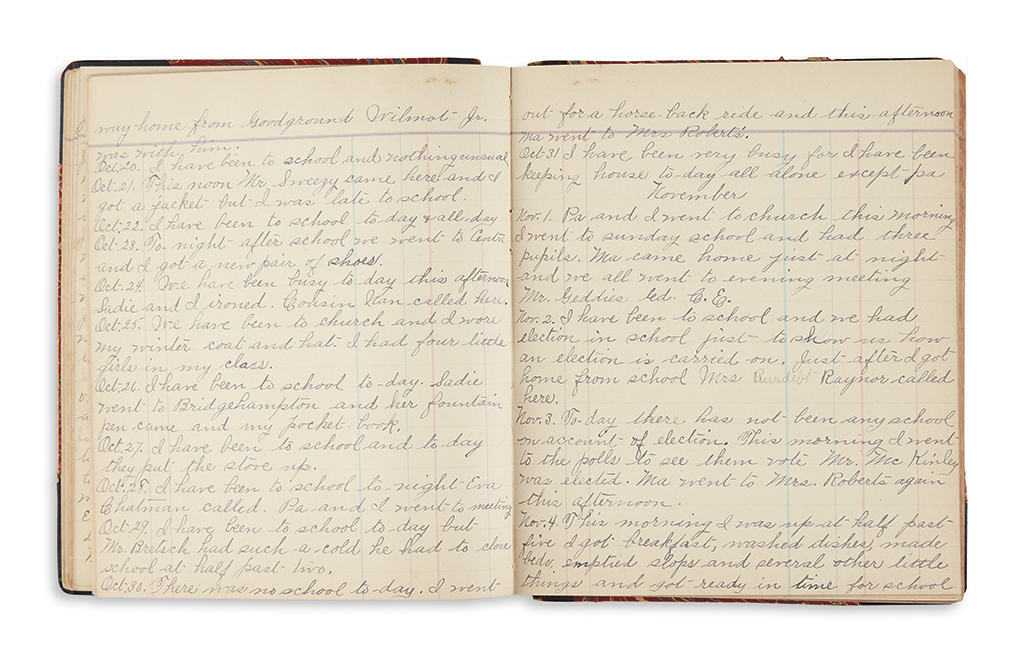 way home from Goodground Wilmot Jr.
was with him.
Oct. 20. I have been to school and nothing unusual
Oct. 21. This noon Mr. Sweezy came here and I
got a jacket but I was late to school.
Oct. 22. I have been to school to-day & all day
Oct. 23. To night after school we went to Centre
and I got a new pair of shoes.
Oct. 24. We have been busy to-day this afternoon
Sadie and I ironed. Cousin Nan called here.
Oct. 25. We have been to church and I wore
my winter coat and hat. I had four little
girls in my class.
Oct. 26. I have been to school to-day. Sadie
went to Bridgehampton and her fountain
pen came and my pocket-book.
Oct. 27. I have been to school and to day
they put the stove up.
Oct. 28. I have been to school to-night Eva
Chatman called. Pa and I went to meeting
Oct. 29. I have been to school to-day but
Mr. Bretsch had such a cold he had to close
school at half past two.
Oct. 30. There was no school to-day. I went
out for a horse-back ride and this afternoon
Ma went to Mrs Roberts'.
Oct 31 I have been very busy for I have been
keeping house to-day all alone except pa
November
Nov. 1. Pa and I went to church this morning
I went to sunday school and had three
pupils. Ma came home just at night
and we all went to evening meeting
Mr. Geddies led. C. E.
Nov. 2. I have been to school and we had
election in school just to show us how
an election is carried on. Just after I got
home from school Mrs Raynor called
here.
Nov. 3. To-day there has not been any school
on account of election. This morning I went
to the polls to see them vote Mr. McKinley
was elected. Ma went to Mrs. Roberts again
this afternoon.
Nov. 4. This morning I was up at half past
five I got breakfast, washed dishes, made
beds, emptied slops and several other little
things and got ready in time for school